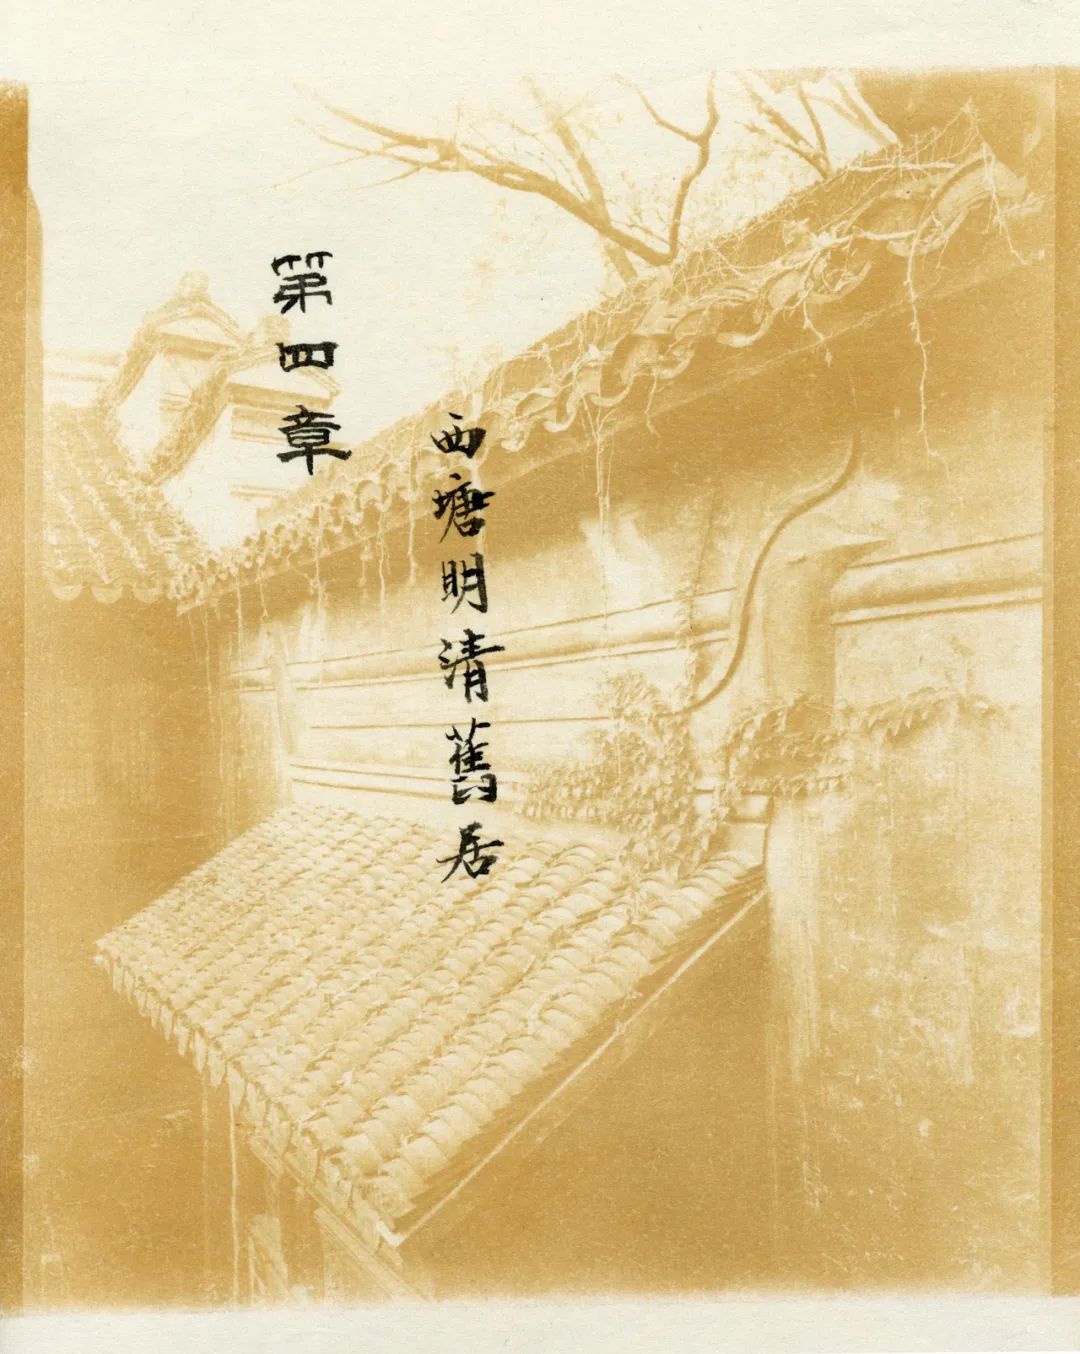 第四章
西塘明清舊居